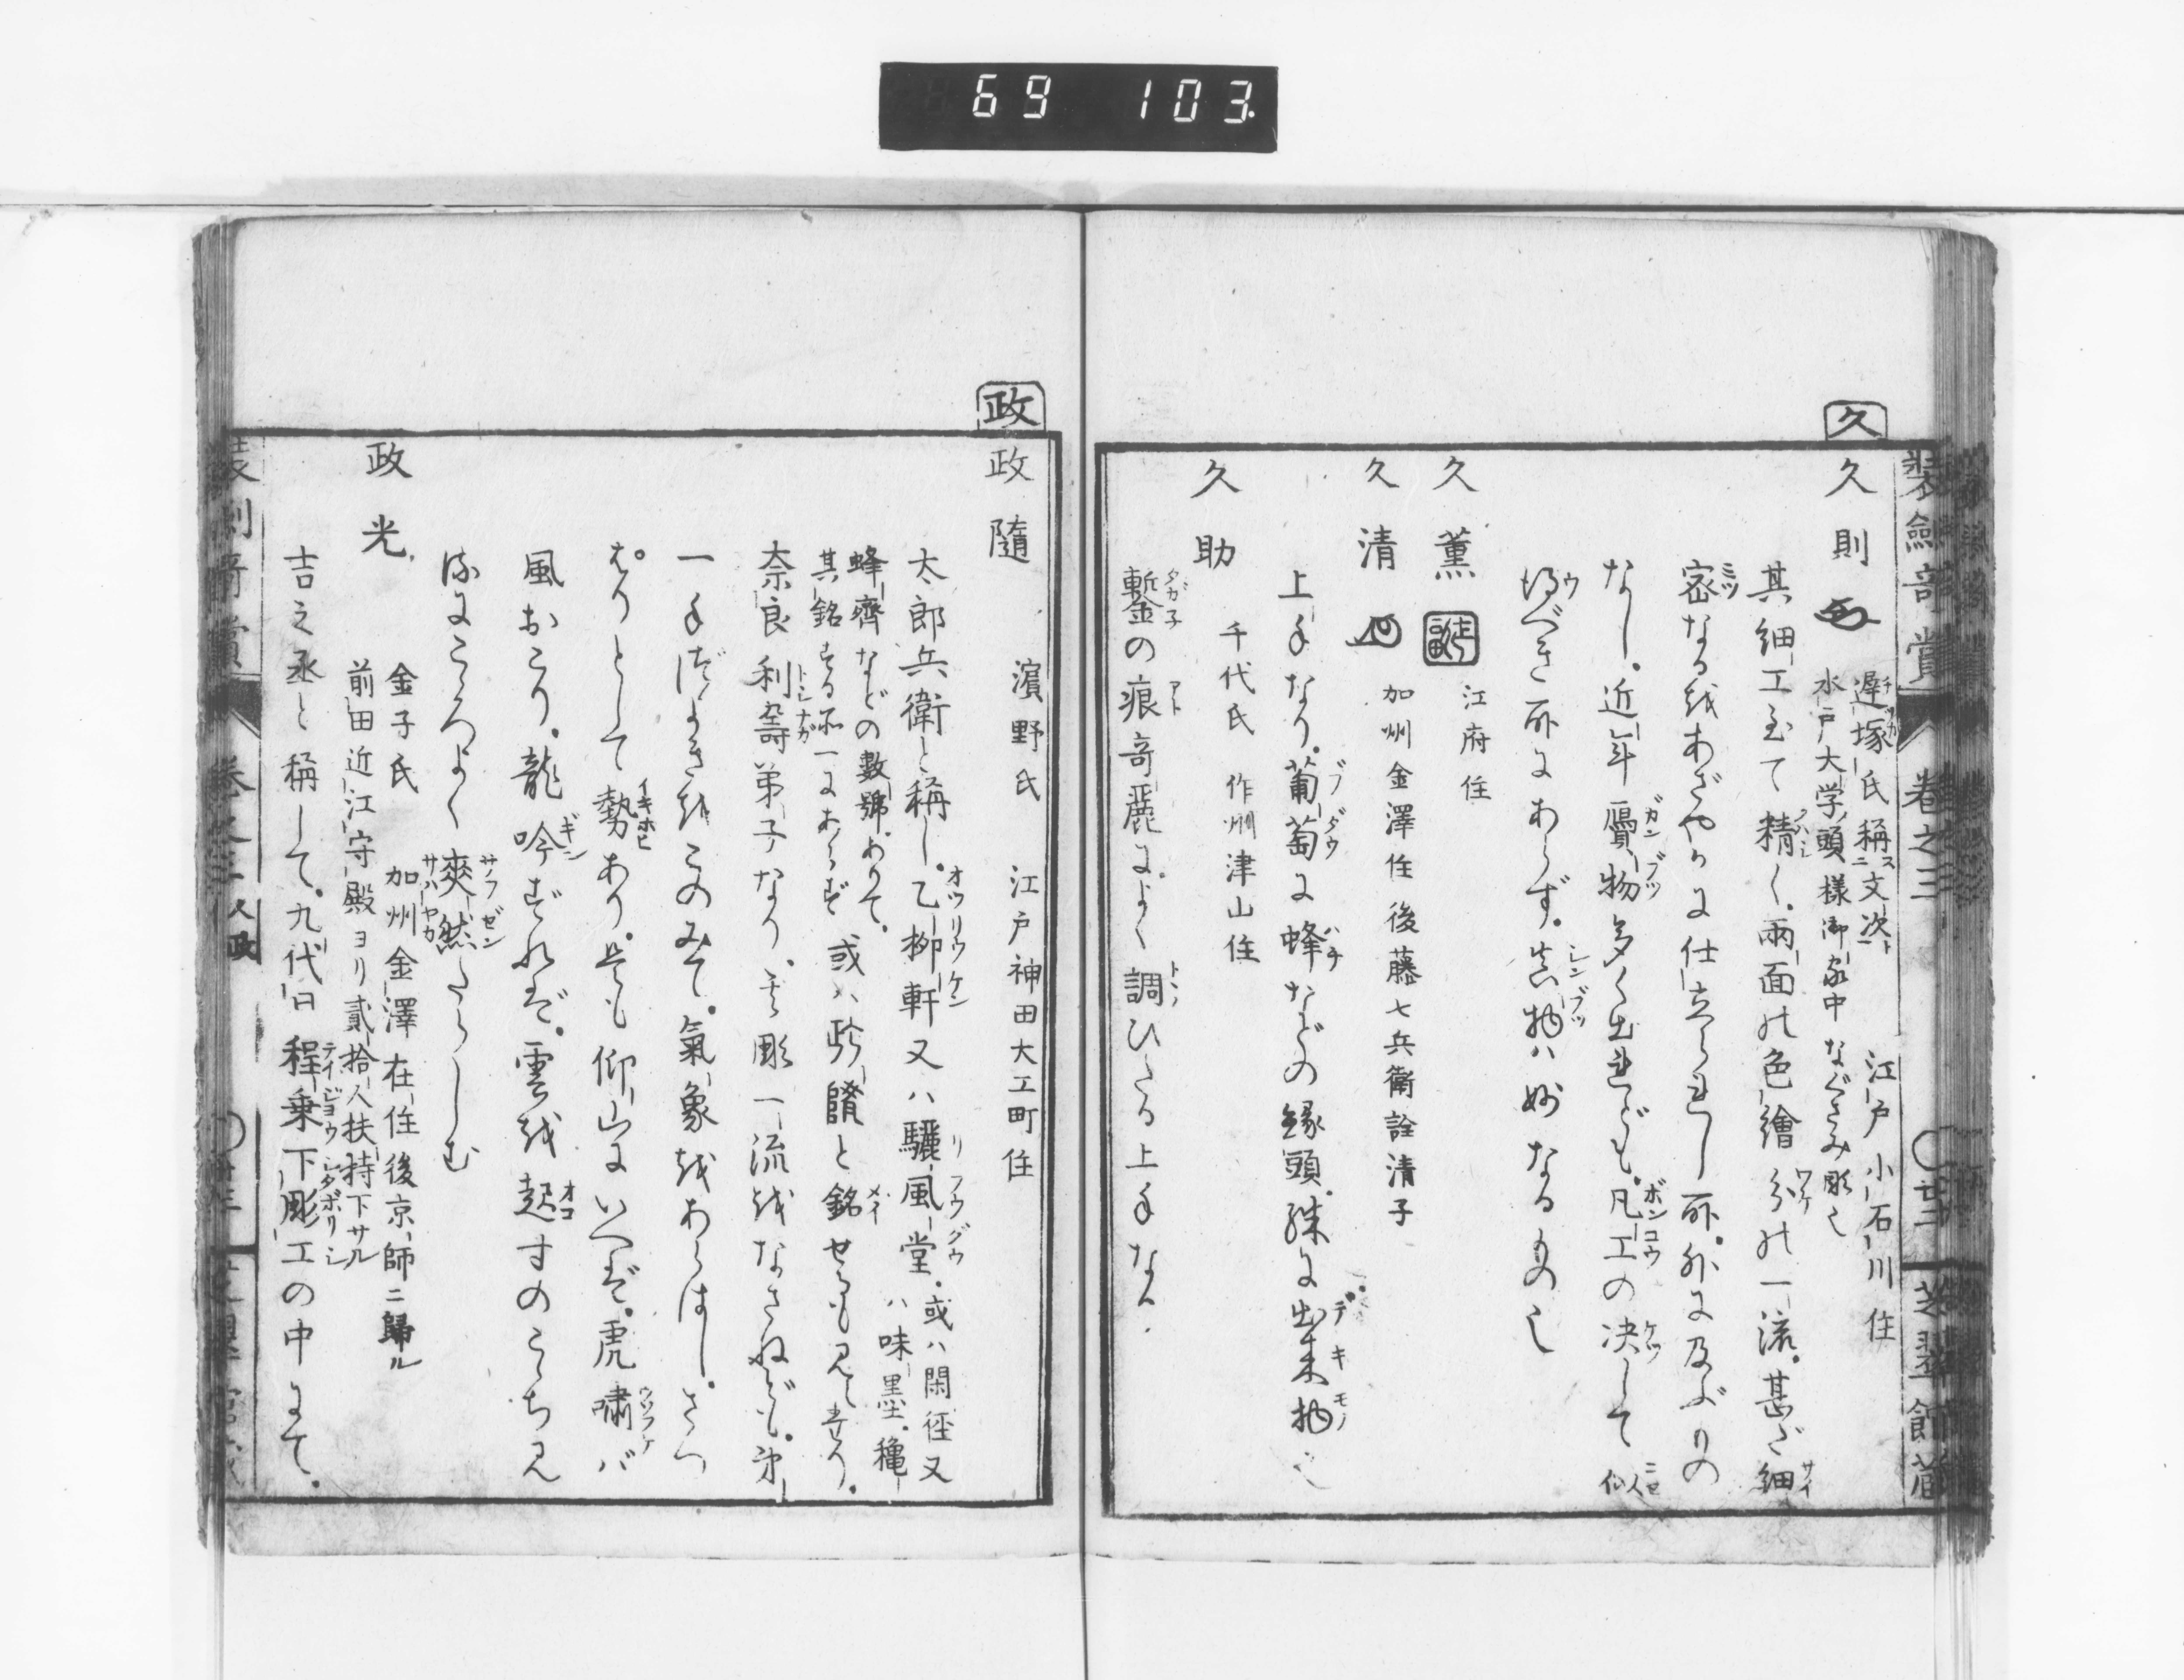 69 103
久
装劔竒賞 巻之三 芝翠館蔵
久則 遲塚氏稱ス二文次ト 江戸小石川住
水戸大学頭様御家中なぐさみ彫也
其細工至て精く。兩面の色繪分の一流。甚ダ細
密なるをあざやかに仕立られし所。外に及ぶもの
なし。近年贋物多く出れども。凡工の决して似
得べき所にあらず。真物ハ妙なるもの也
久薫 江府住
久清 加州金澤住後藤七兵衛詮清子
上手なり。葡萄に蜂などの縁頭。殊に出来物也
久助 千代氏 作州津山住
鏨の痕竒麗によく調ひたる上手なり
政
政隨 濵野氏 江戸神田大工町住
太郎兵衛と稱し。乙柳軒又ハ驪風堂。或ハ閑徑又
ハ味墨。穐
蜂齊などの數號ありて。
其銘する所一にあらず 或ハ政隨と銘せるも見え
奈良利寿弟子なり。其彫一流をなさねども。
一手づよきをこのみて。氣象をあらはし。
として勢あり。是も仰山にいへば。虎嘯バ
風おこり。龍吟ずれば。雲を起すのこゝち見
るにこゝろよく爽然たらしむ
政光 金子氏 加州金澤在住後京師ニ歸ル
前田近江守殿ヨリ貳拾人扶持下サル
吉之丞と稱して。九代目程乗下彫工の中にて。